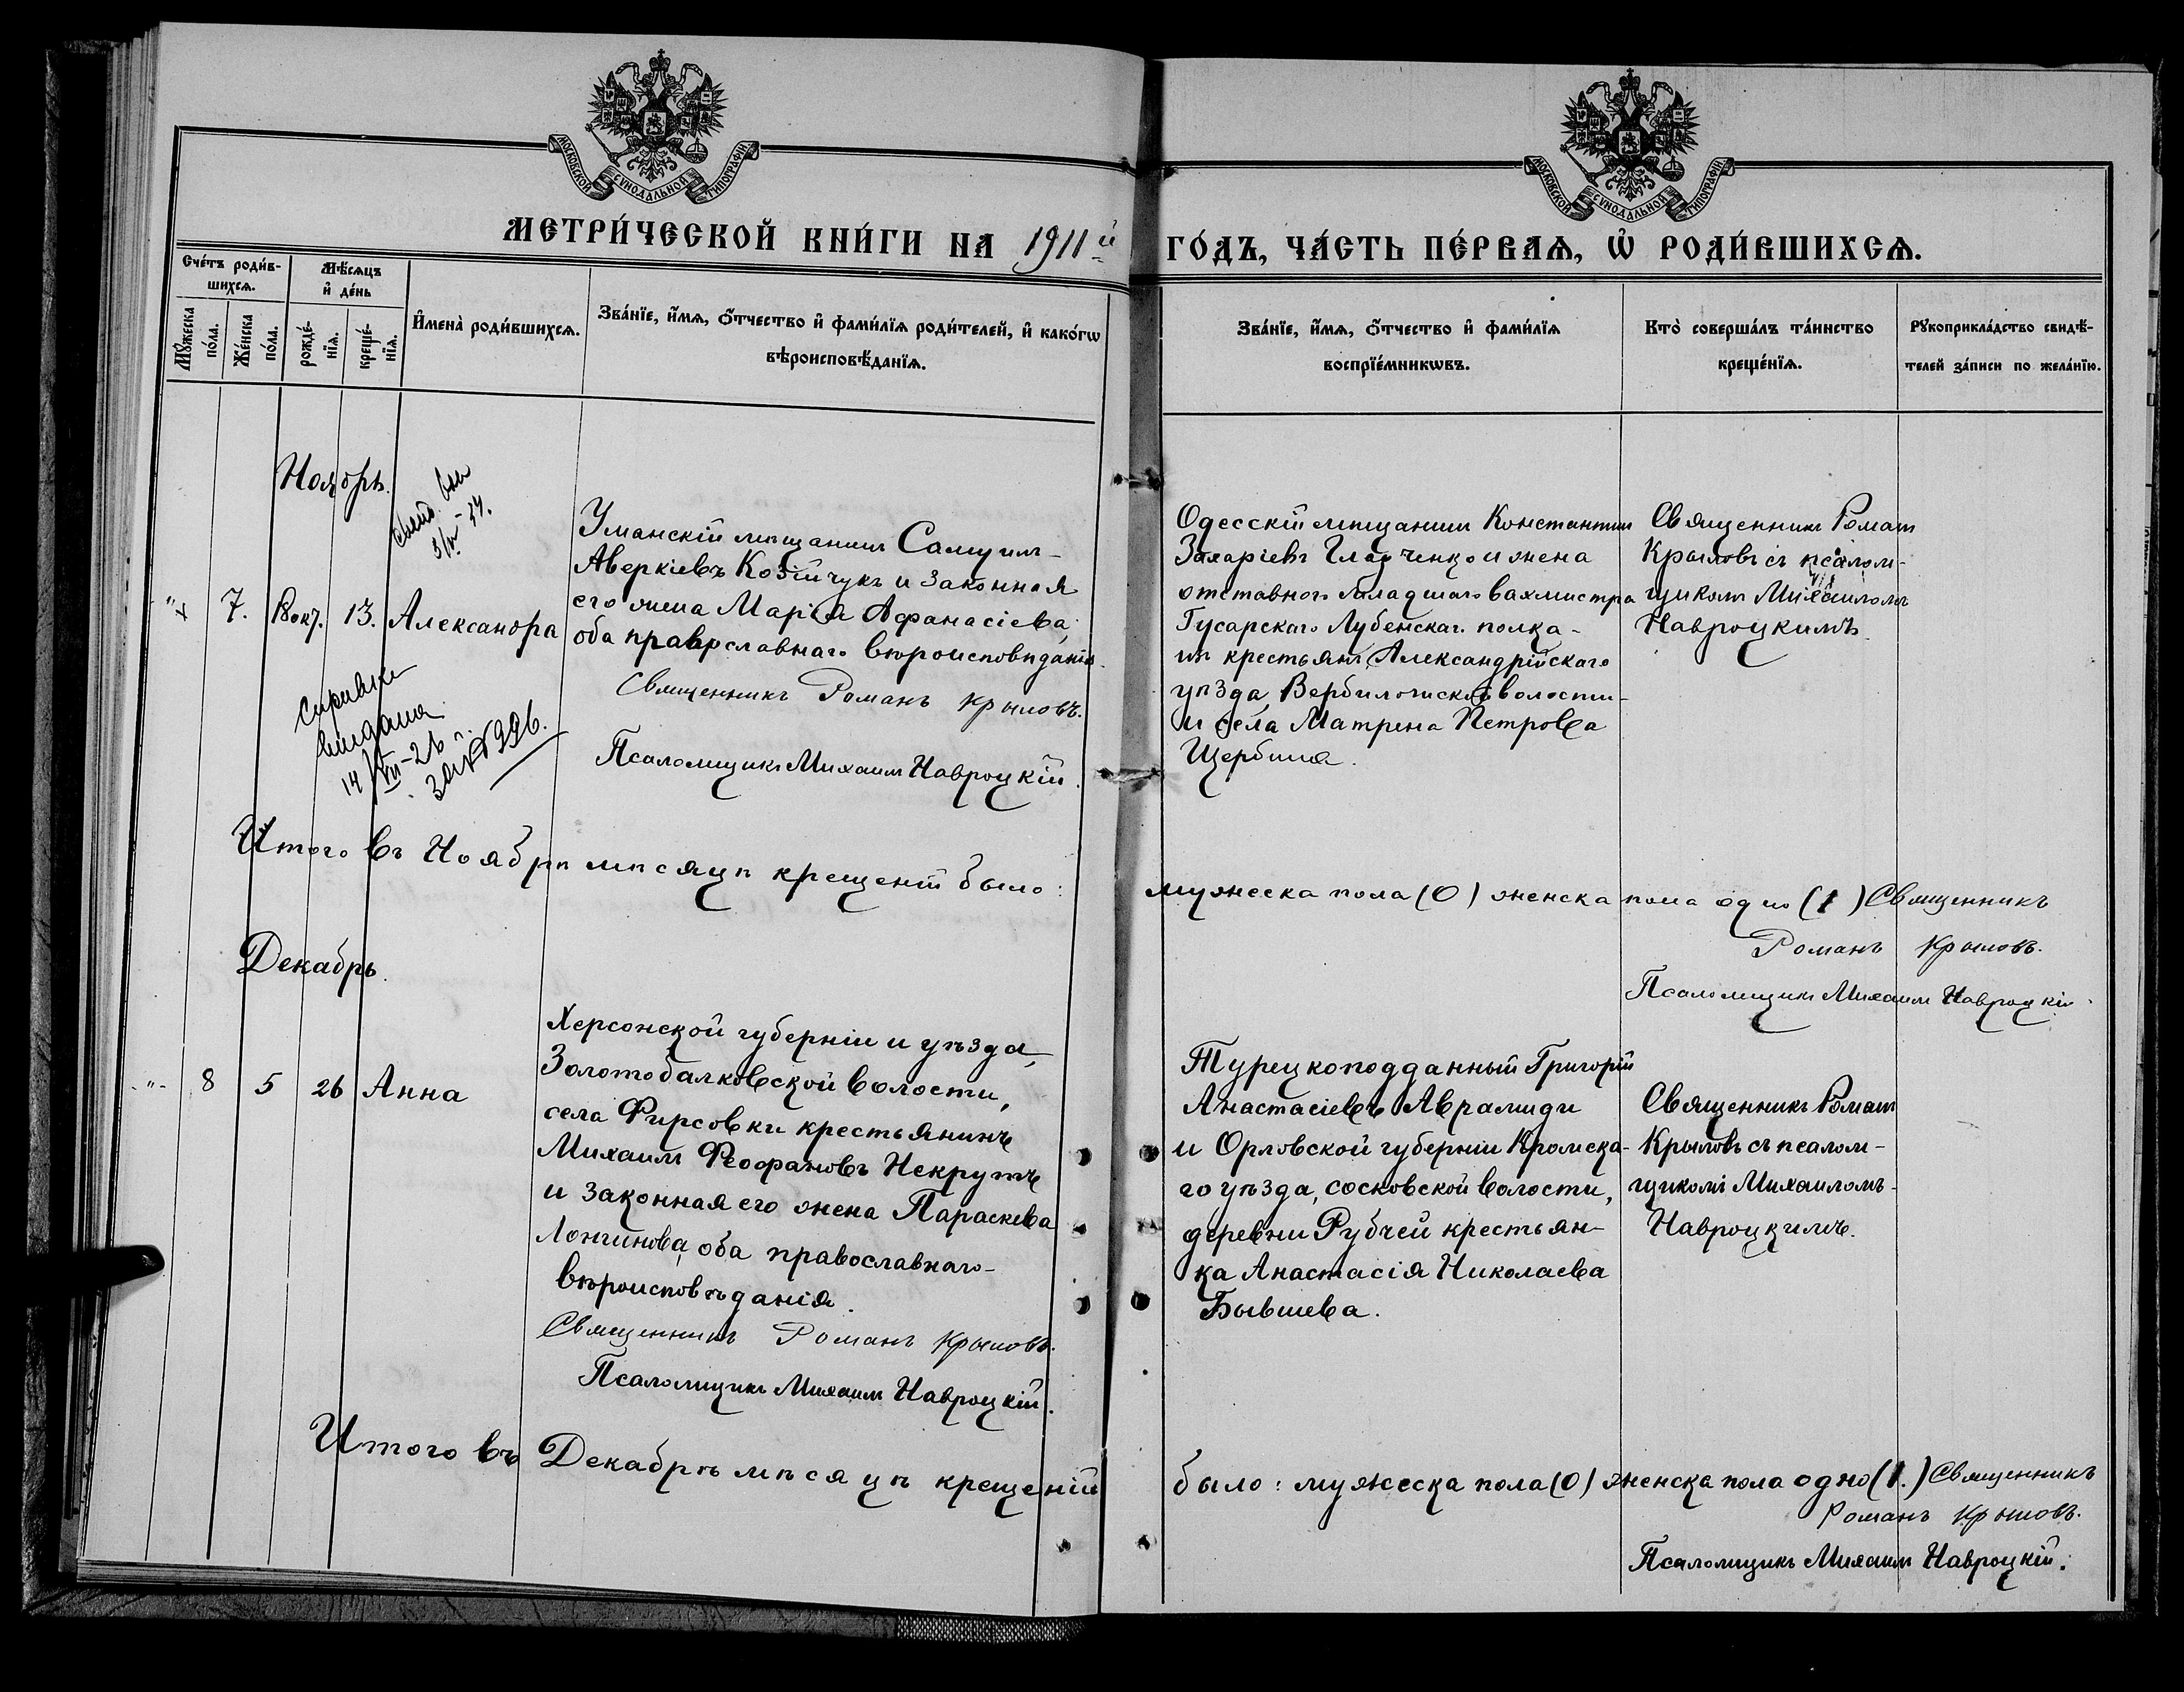 МОСКОВСКОЙ СѴНОДАЛЬНОЙ ТИПОГРАФІИ
МОСКОВСКОЙ СѴНОДАЛЬНОЙ ТИПОГРАФІИ
МЕТРИ́ЧЕСКОЙ КНИ́ГИ НА 1911й
ГО́ДЪ, ЧА́СТЬ ПЕ́РВАѦ, Ѡ҆ РОДИ́ВШИХСѦ.
Сче́тъ роди́в-
шихсѧ.
Мѣ́сѧцъ
и҆ де́нь
Мꙋ́жеска
по́ла.
Же́нска
по́ла.
рожде́-
нїѧ.
креще́-
нїѧ.
И҆мена̀ роди́вшихсѧ.
Зва́нїе, и҆́мѧ, ѻ҆́тчество и҆ фами́лїѧ роди́телей, и҆ како́гѡ
вѣроисповѣ́данїѧ.
Зва́нїе, и҆́мѧ, ѻ҆́тчество и҆ фами́лїѧ
воспрїе́мникѡвъ.
Кто̀ соверша́лъ та́инство
креще́нїѧ.
Рꙋкоприкла́дство свидѣ́-
телей за́писи по жела́нїю.
Ноябрь.
"
7.
18 окт.
13.
Александра
Уманскій мѣщанинъ Самуилъ
Аверкіевъ Козійчукъ и законная
его жена Марія Афанасіева,
оба православнаго вѣроисповѣданія.
Священникъ Романъ Крыловъ.
Псаломщикъ Михаилъ Навроцкій.
Справка
выдана
14/VII-26 г.
за № 996.
Одесскій мѣщанинъ Константинъ
Захаріевъ Гладченко и жена
отставного младшаго вахмистра
Гусарскаго Лубенскаго полка
изъ крестьянъ Александрійскаго
уѣзда, волости
и села Матрена Петрова
Щербина.
Священникъ Романъ
Крыловъ съ псалом-
щикомъ Михаиломъ
Навроцкимъ.
Итого въ Ноябрѣ мѣсяцѣ крещеній было:
мужеска пола (0) женска пола одно (1) Священникъ
Романъ Крыловъ.
Псаломщикъ Михаилъ Навроцкій.
Декабрь.
-"-
8
5
26
Анна
Херсонской губерніи и уѣзда,
Золотобалковской волости,
села Фирсовки крестьянинъ
Михаилъ Феофановъ Некрутъ
и законная его жена Параскева
Лонгинова, оба православнаго
вѣроисповѣданія.
Священникъ Романъ Крыловъ.
Псаломщикъ Михаилъ Навроцкій.
Турецкоподданный Григорій
Анастасіевъ Аврамиди
и Орловской губерніи Кромска-
го уѣзда, сосковской волости,
деревни Рубчей крестьян-
ка Анастасія Николаева
Бывшева.
Священникъ Романъ
Крыловъ съ псалом-
щикомъ Михаиломъ
Навроцкимъ.
Итого въ Декабрѣ мѣсяцѣ крещеній
было: мужеска пола (0) женска пола одно (1.) Священникъ
Романъ Крыловъ.
Псаломщикъ Михаилъ Навроцкій.